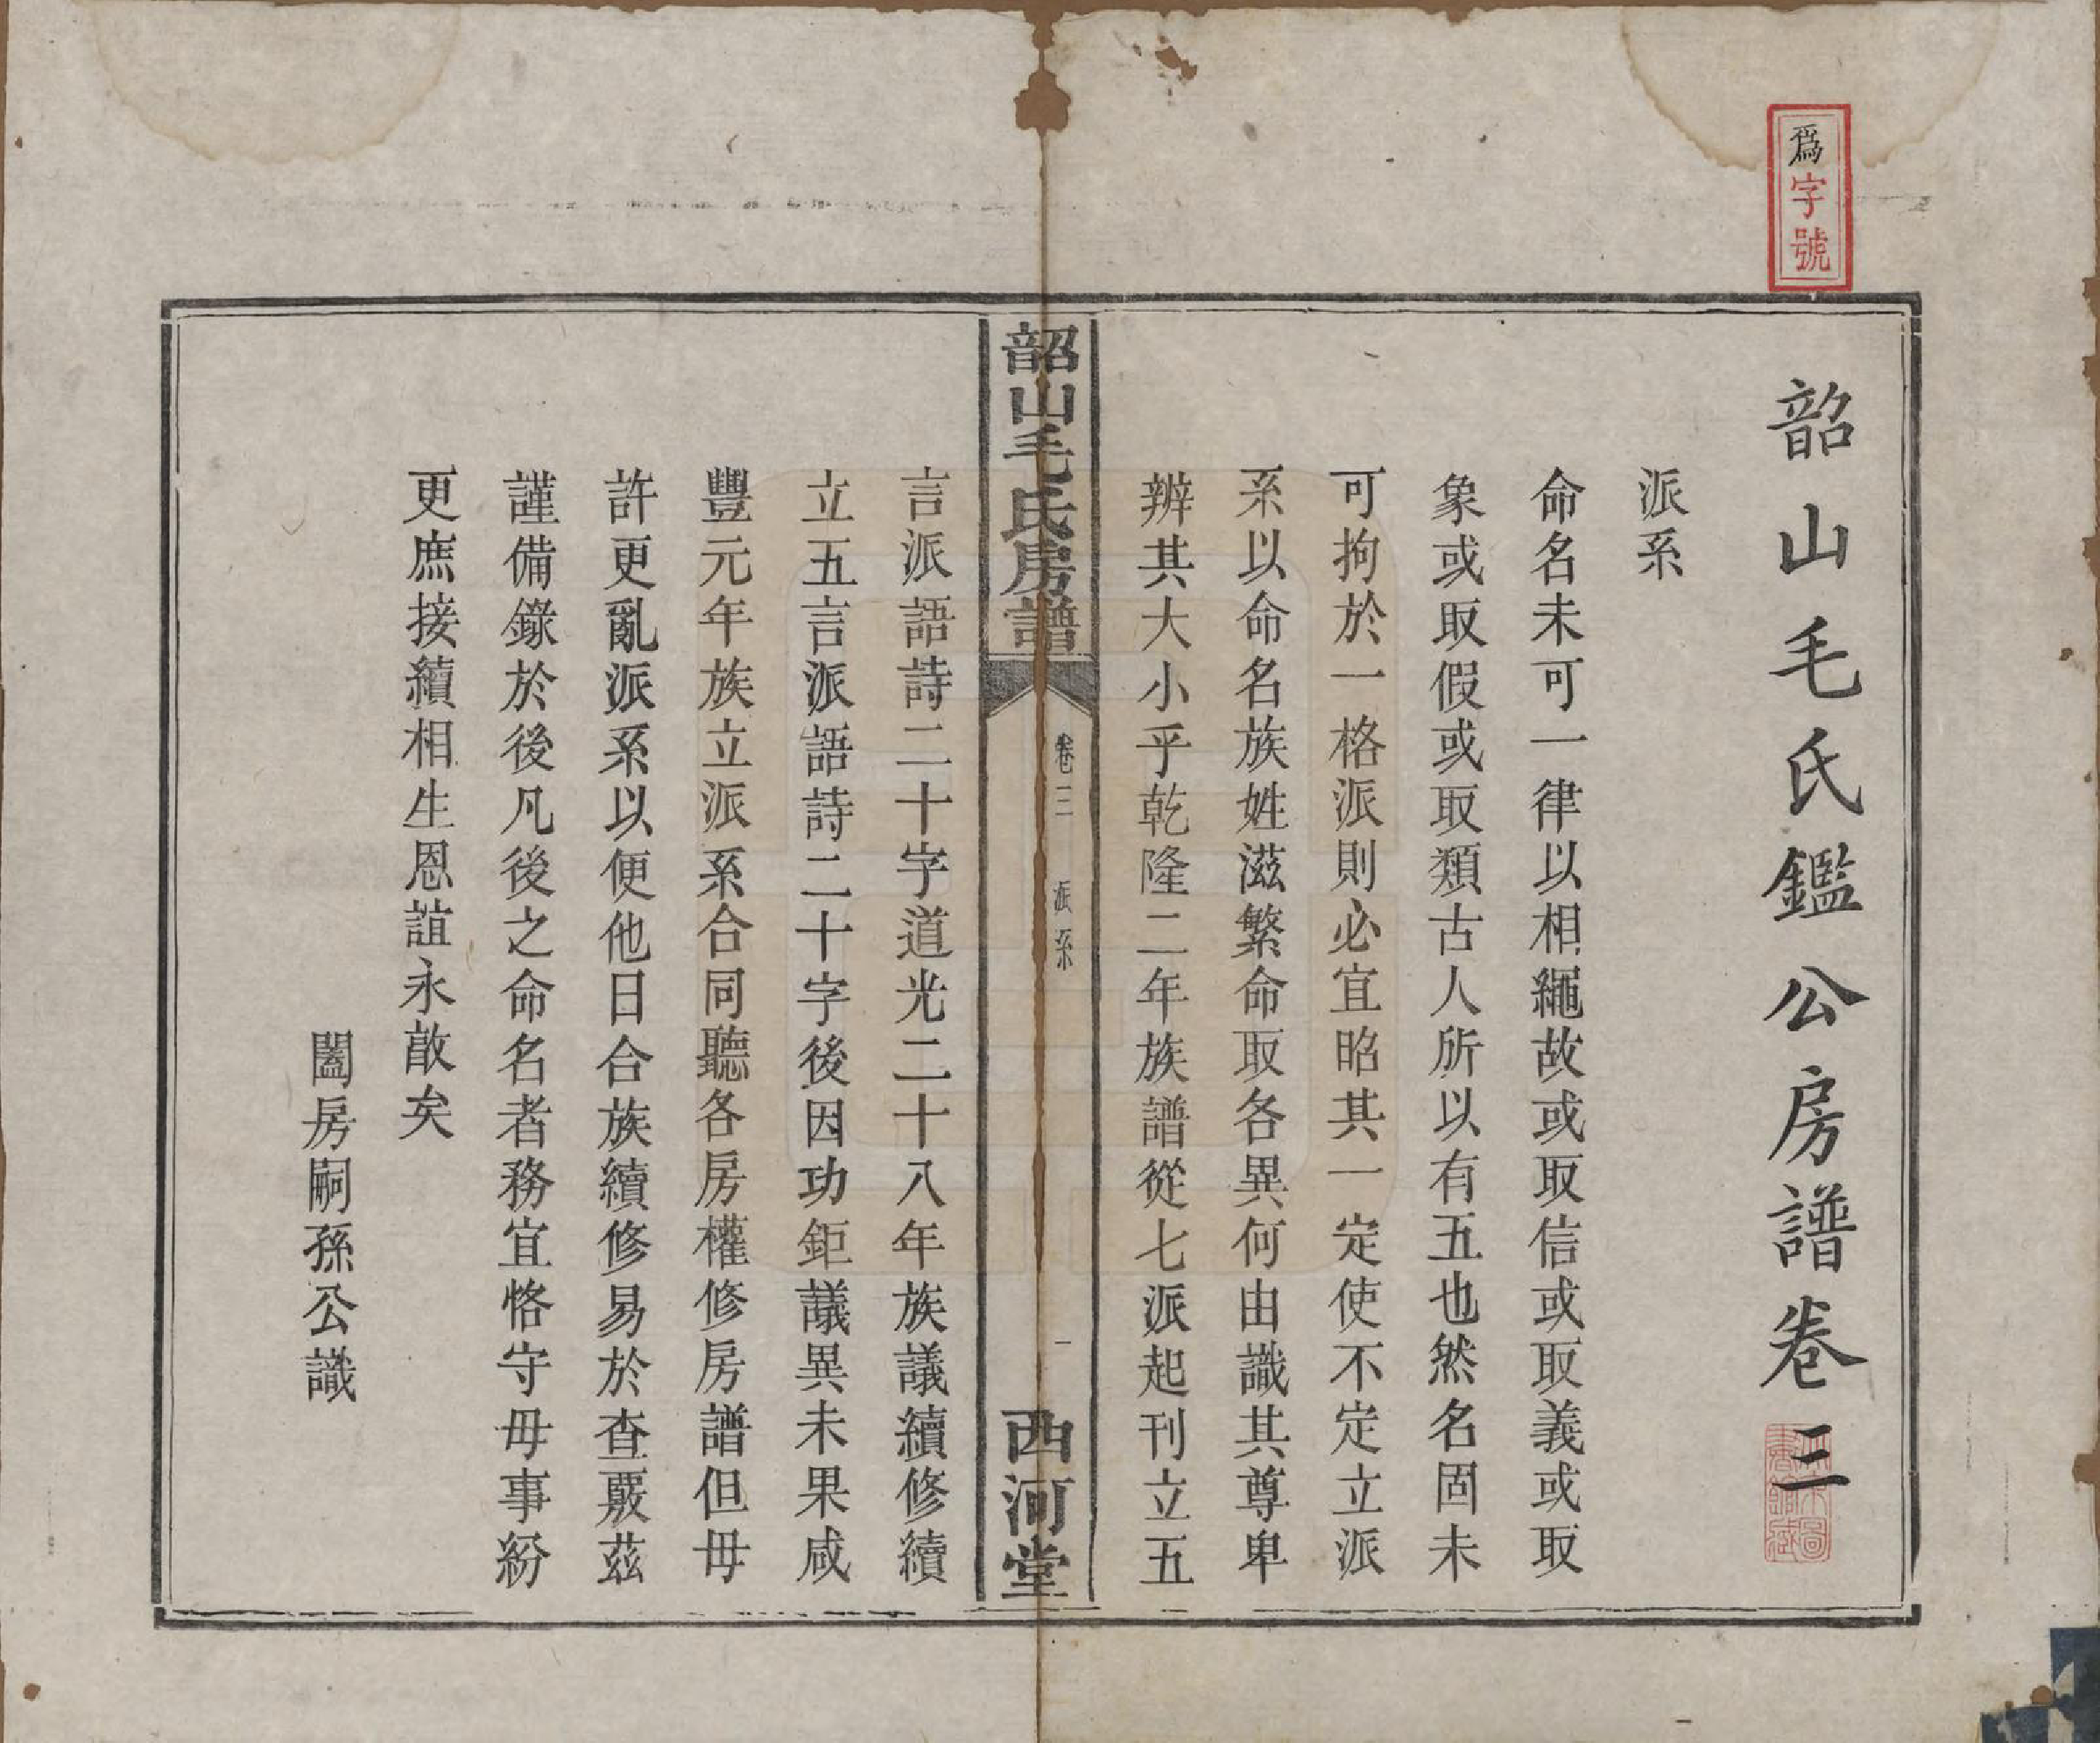 爲字號
韶山毛氏鑑公房譜卷三
派系
命名未可一律以相繩故或取信或取義或取
象或取假或取類古人所以有五也然名固未
可拘於一格派則必宜昭其一定使不定立派
系以命名族姓滋繁命取各異何由識其尊卑
辨其大小乎乾隆二年族譜從七派起刊立五
韶山毛氏房譜
卷三 派系
一
西河堂
言派語詩二十字道光二十八年族議續修續
立五言派語詩二十字後因功鉅議異未果咸
豐元年族立派系合同聽各房權修房譜但毋
許更亂派系以便他日合族續修易於查覈茲
謹備錄於後凡後之命名者務宜恪守毋事紛
更庶接續相生恩誼永敵矣
闔房嗣孫公識